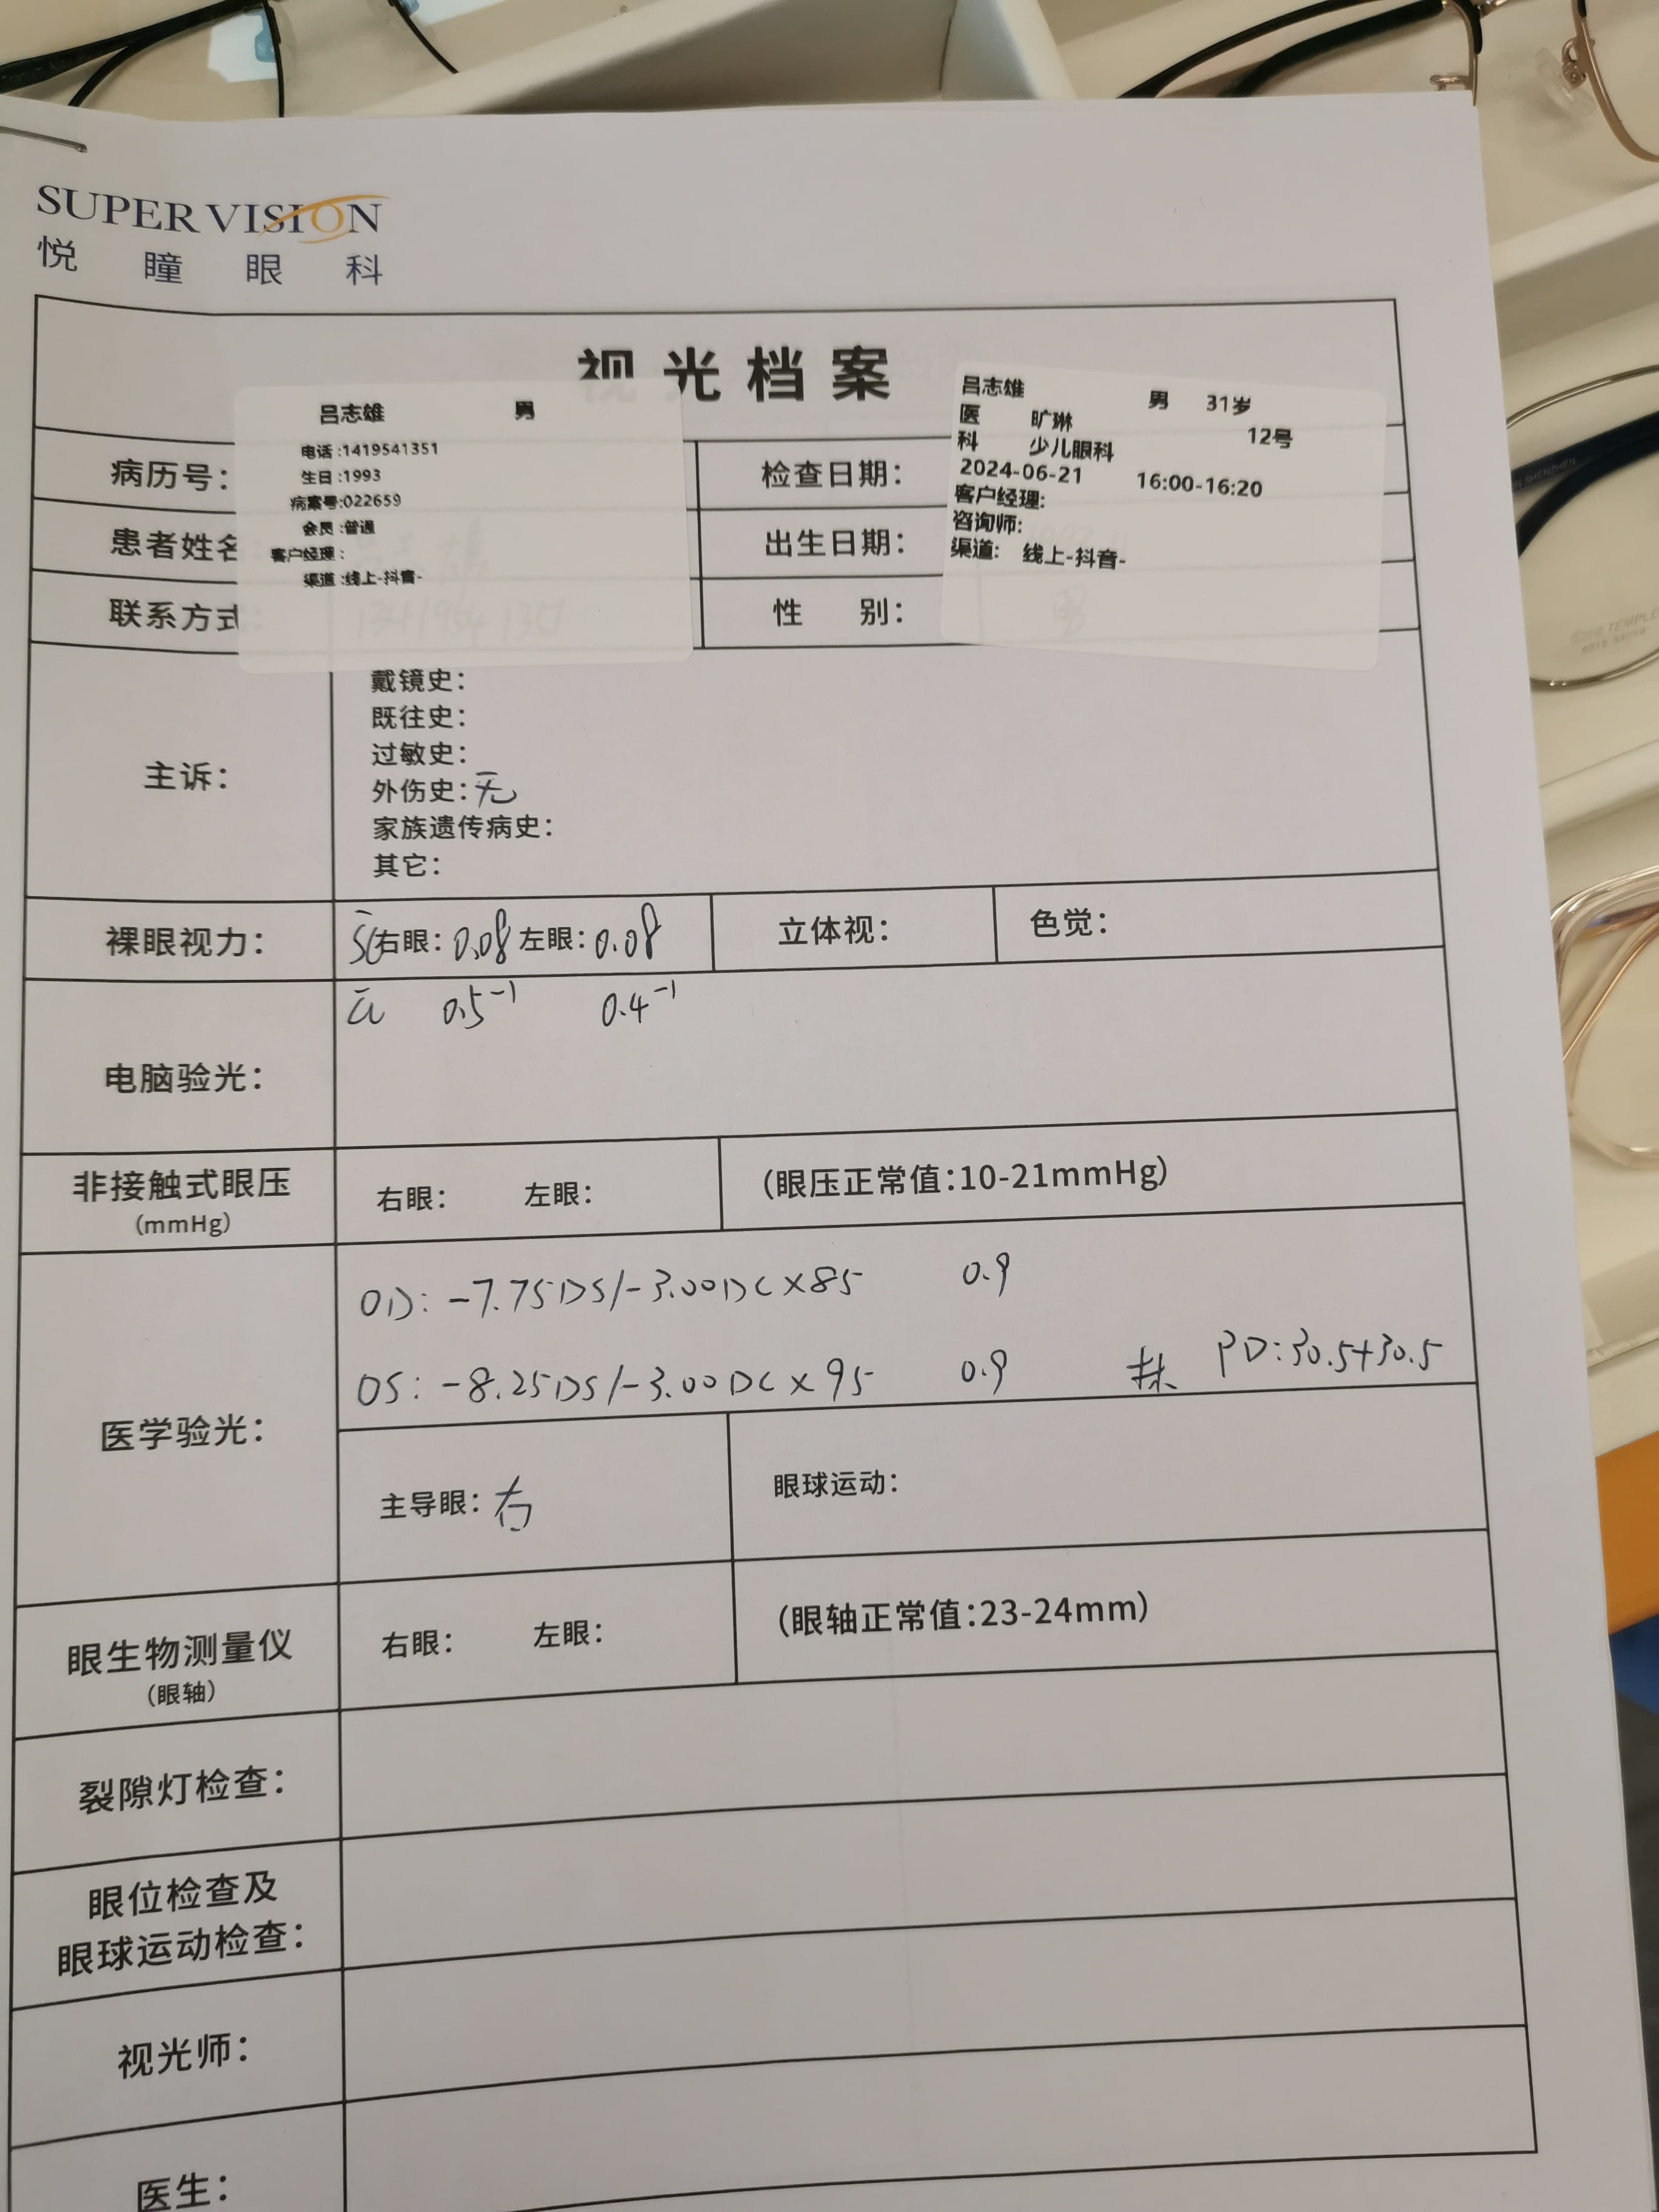 SUPER VISION
悦瞳眼科
视光档案
吕志雄 男
电话:1419541351
生日:1993
病案号:022659
会员:普通
客户经理:
渠道:线上-抖音-
吕志雄 男 31岁
医 旷琳 12号
科 少儿眼科
2024-06-21 16:00-16:20
客户经理:
咨询师:
渠道: 线上-抖音-
病历号: 检查日期:
患者姓名 出生日期:
联系方式 性 别:
主诉:
戴镜史:
既往史:
过敏史:
外伤史:无
家族遗传病史:
其它:
裸眼视力: 右眼: 0.08 左眼: 0.08 立体视: 色觉:
0.5⁻¹ 0.4⁻¹
电脑验光:
非接触式眼压 右眼: 左眼: (眼压正常值:10-21mmHg)
(mmHg)
医学验光:
OD: -7.75DS/-3.00DC×85 0.9
OS: -8.25DS/-3.00DC×95 0.9 PD:30.5+30.5
主导眼:右 眼球运动:
眼生物测量仪 右眼: 左眼: (眼轴正常值:23-24mm)
(眼轴)
裂隙灯检查:
眼位检查及
眼球运动检查:
视光师:
医生: